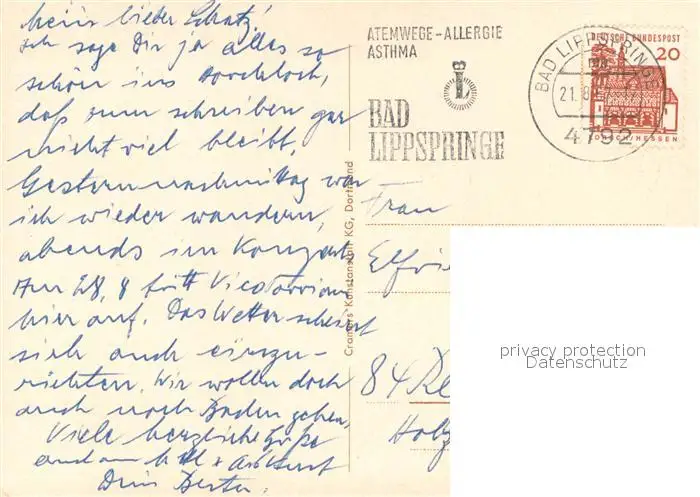 mein lieber Schatz!
Ich sage Dir ja alles so
schön ins
daß zum schreiben gar
nicht viel bleibt.
Gestern nachmittag war
ich wieder wandern,
abends im Konzert.
Am 28, 8 tritt
hier auf. Das Wetter scheint
sich auch einzu-
richten. Wir wollen doch
auch noch Baden gehen,
Viele herzliche Grüße
und
Dein
Cramers Kunstanstalt KG, Dortmund
ATEMWEGE-ALLERGIE
ASTHMA
L
BAD
LIPPSPRINGE
BAD LIPPSPRINGE
21. 8.
4792
DEUTSCHE BUNDESPOST
20
LORSCH/HESSEN
Frau
Elfrie
84 Re
Holz
privacy protection
Datenschutz